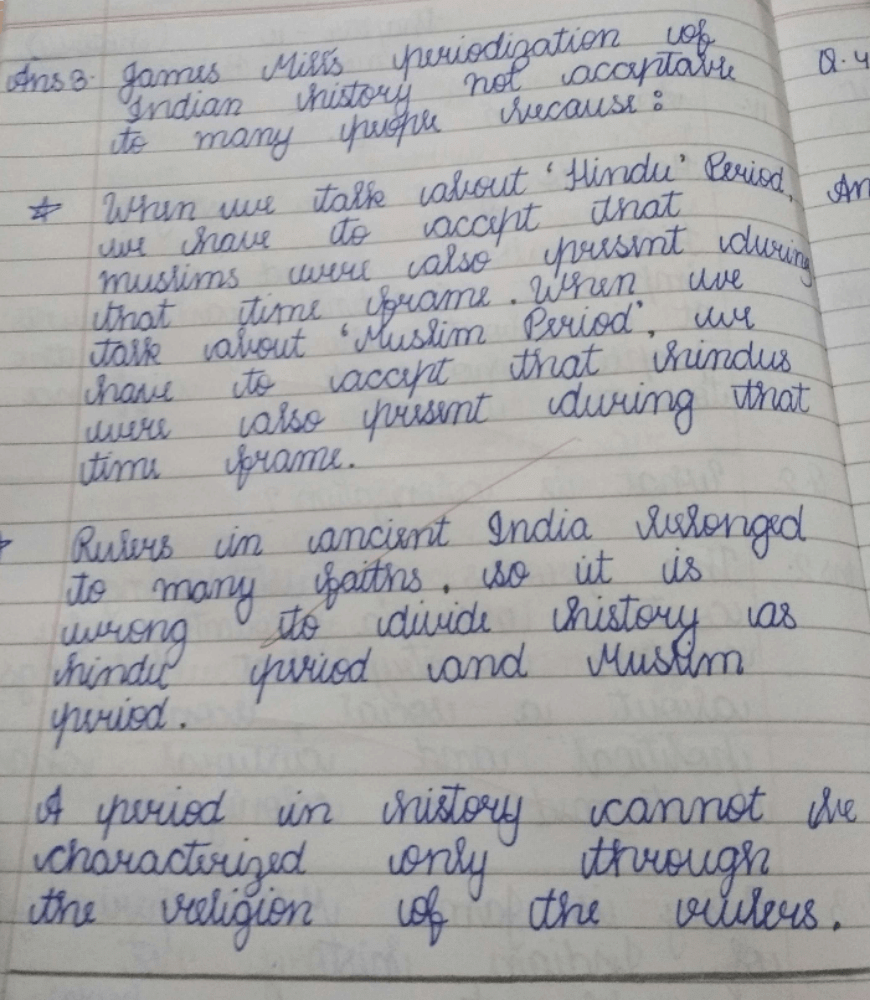 Ans 3. James Mill's periodization of Q. 4
Indian history not acceptable
to many people because:
* When we talk about 'Hindu' Period, An
we have to accept that
muslims were also present during
that time frame. When we
talk about 'Muslim Period', we
have to accept that hindus
were also present during that
time frame.
Rulers in ancient India belonged
to many faiths. so it is
wrong to divide history as
hindu period and Muslim
period.
A period in history cannot be
characterized only through
the religion of the rulers.